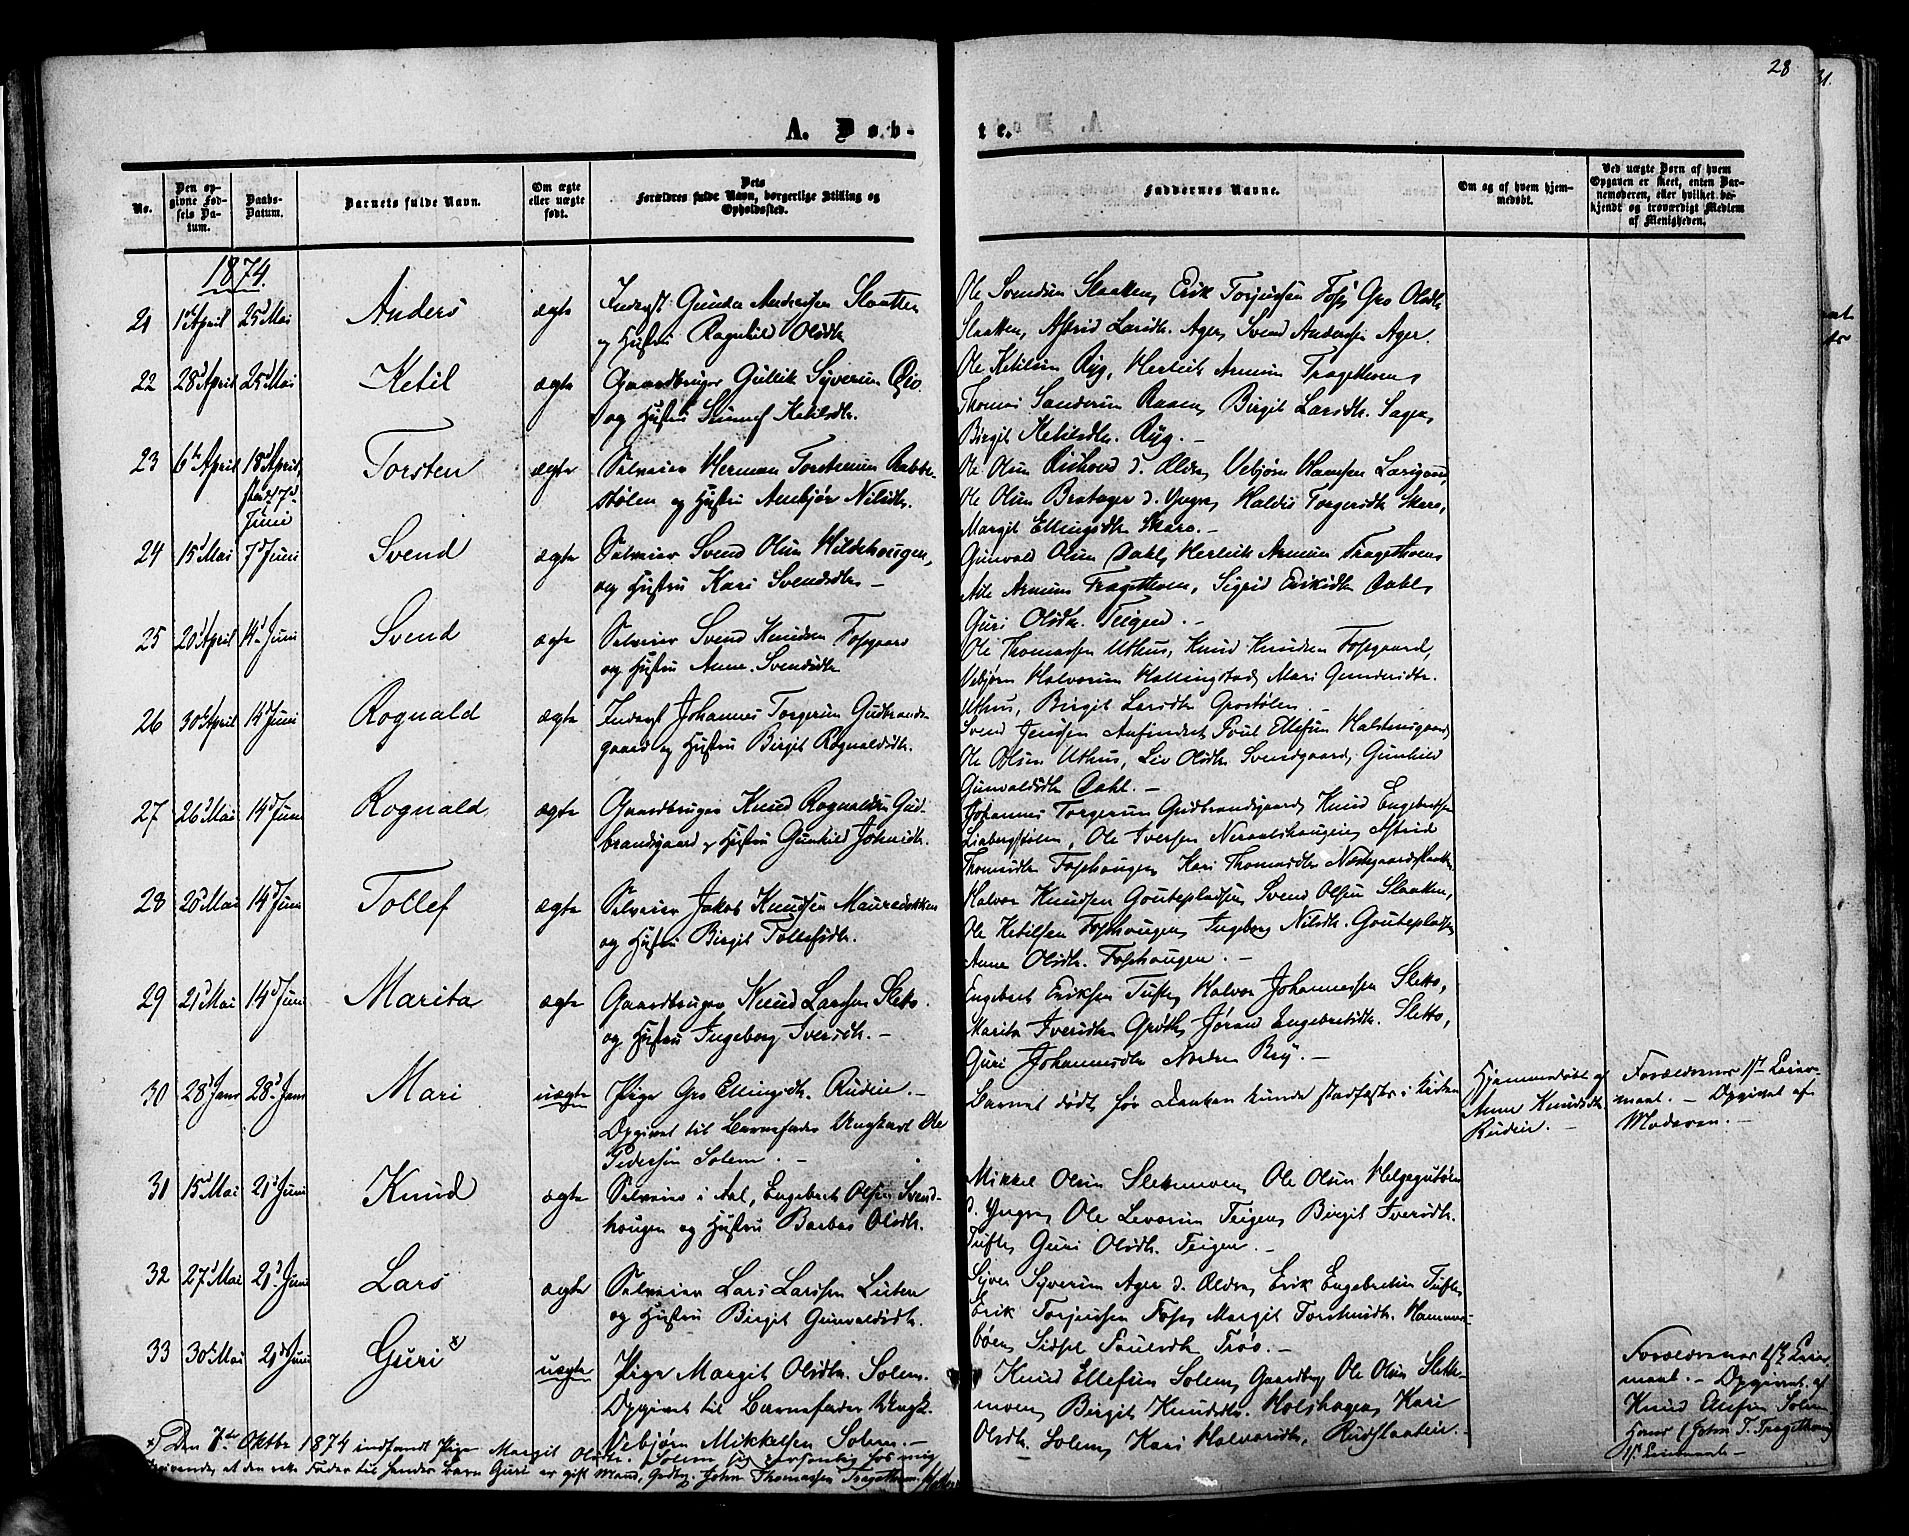 28
A. Døb-
te.
No.
Den opgivne Fødsels Datum.
Daabs-Datum.
Barnets fulde Navn.
Om ægte eller uægte født.
Dets Forældres fulde Navn, borgerlige Stilling og Opholdssted.
Faddernes Navne.
Om og af hvem hjemmedøbt.
Ved uægte Børn af hvem Opgaven er skeet, enten Barnemoderen, eller hvilket bekjendt og troværdigt Medlem af Menigheden.
1874.
21 1ste April 25de Mai Anders ægte
og Hustru Ragnhild Olsdtr
Ole Svendsen Slaatten, Erik Torjussen Foss, Gro Olsdtr
Slaatten, Astrid Larsdtr. Ager, Svend Andersen Ager.
22 28d April 25d Mai Ketil ægte
Gaardbruger Gullik Syversen
og Hustru Ketilsdtr.
Ole Ketilsen Ryg, Herleik Arnesen Tragethoen,
Thomas Sandersen Birgit Larsdtr.
Birgit Ketilsdtr. Ryg. –
23 6te April 18d April, stad. 7d Juni Torsten ægte
Selveier Herman Torstensen
stølen og Hustru Ambjør Nilsdtr.
Ole Olsen d. Ældre, Vebjørn Hansen
Ole Olsen Bratager d. Yngre, Haldis Torgersdtr Skaro,
Margit Ellingsdtr Skaro. –
24 15d Mai 7d Juni Svend ægte
Selveier Svend Olsen Hildehougen,
og Hustru Kari Svendsdtr –
Gunvald Olsen Dahl, Herleik Arnesen Tragethoen
Arnesen Tragethoen, Sigrid Eriksdtr Dahl,
Guri Olsdtr. Teigen. –
25 20d April 14d Juni Svend ægte
Selveier Svend Knudsen Fossgaard
og Hustru Anne Svendsdtr
Ole Thomassen Uthus, Knud Knudsen Fossgaard,
Vebjørn Halvorsen Hallingstad, Mari Gundersdtr.
Uthus, Birgit Larsdtr Grostølen. –
26 30d April 14d Juni Rognald ægte
Inderst Johannes Torgersen Gudbrands-
gaard og Hustru Birgit Rognaldsdtr.
Svend Jensen Aufindset, Poul Ellefsen
Ole Olsen Uthus, Liv Olsdtr Svendsgaard, Gunhild
Gunvaldsdtr Dahl. –
27 26d Mai 14d Juni Rognald ægte
Gaardbruger Knud Rognaldsen Gud-
brandsgaard og Hustru Gunhild Johnsdtr.
Johannes Torgersen Gudbrandsgaard, Knud Engebretsen
Liabergstølen, Ole Iversen Neraalshougen, Astrid
Thomasdtr Fosshougen, Kari Thomasdtr
28 20d Mai 14d Juni Tollef ægte
Selveier Jakob Knudsen
og Hustru Birgit Tollefsdtr.
Halvor Knudsen Gouteplassen, Svend Olsen Slaatten,
Ole Ketilsen Fosshougen, Ingeborg Nilsdtr. Gouteplassen
Anne Olsdtr. Fosshougen. –
29 21d Mai 14d Juni Marita ægte
Gaardbruger Knud Larssen Sletto.
og Hustru Ingeborg Iversdtr. –
Engebret Eriksen Tufte, Halvor Johannessen Sletto,
Marita Iversdtr Grøth, Jøran Engebretsdtr. Sletto,
Guri Johannesdtr Nordre Ry. –
30 28d Janr 28d Janr Mari uægte
Pige Gro Ellingsdtr. Rudie. –
Opgivet til Barnefader Ungkarl Ole
Pedersen Solem. –
Barnet dødt før Daaben kunde stadfæstes i Kirken
Hjemmedøbt af
Anne Knudsdtr.
Rudie. –
Forældrenes 1ste Leier-
maal. – Opgivet af
Moderen. –
31 15d Mai 21d Juni Knud ægte
Selveier i Aal, Engebret Olsen Svend-
hougen og Hustru Barbro Olsdtr.
Mikkel Olsen Sletemoen, Ole Olsen
d. Yngre, Ole Levorsen Teigen, Birgit Iversdtr.
Tufte, Guri Olsdtr. Teigen. –
32 27d Mai 21d Juni Lars ægte
Selveier Lars Larssen
og Hustru Birgit Gunvaldsdtr.
Syver Syversen Ager d. Ældre, Erik Engebretsen Tufte,
Erik Torjussen Foss, Margit Torstensdtr. Hammers-
bøen, Sidsel Poulsdtr Trøo. –
33 30d Mai 21d Juni Guri x) uægte
Pige Margit Olsdtr. Solem.
Opgivet til Barnefader Ungk.
Vebjørn Mikkelsen Solem. –
Knud Ellefsen Solem, Gaardbr. Ole Olsen Slette-
moen, Birgit Knudsdtr. Holshagen, Kari
Olsdtr. Solem, Kari Halvorsdtr, Rudstaaten. –
Forældrenes 1ste Leier-
maal. – Opgivet af
Knud Ellefsen Solem
John T. Tragethoens
Leiermaal. –
x) Den 7de Oktbr. 1874 indfandt Pige Margit Olsdtr. Solem sig personlig hos mig
opgivende, at den rette Fader til hendes Barn Guri er gift Mand, Grdbg. John Thomassen Tragethoen.